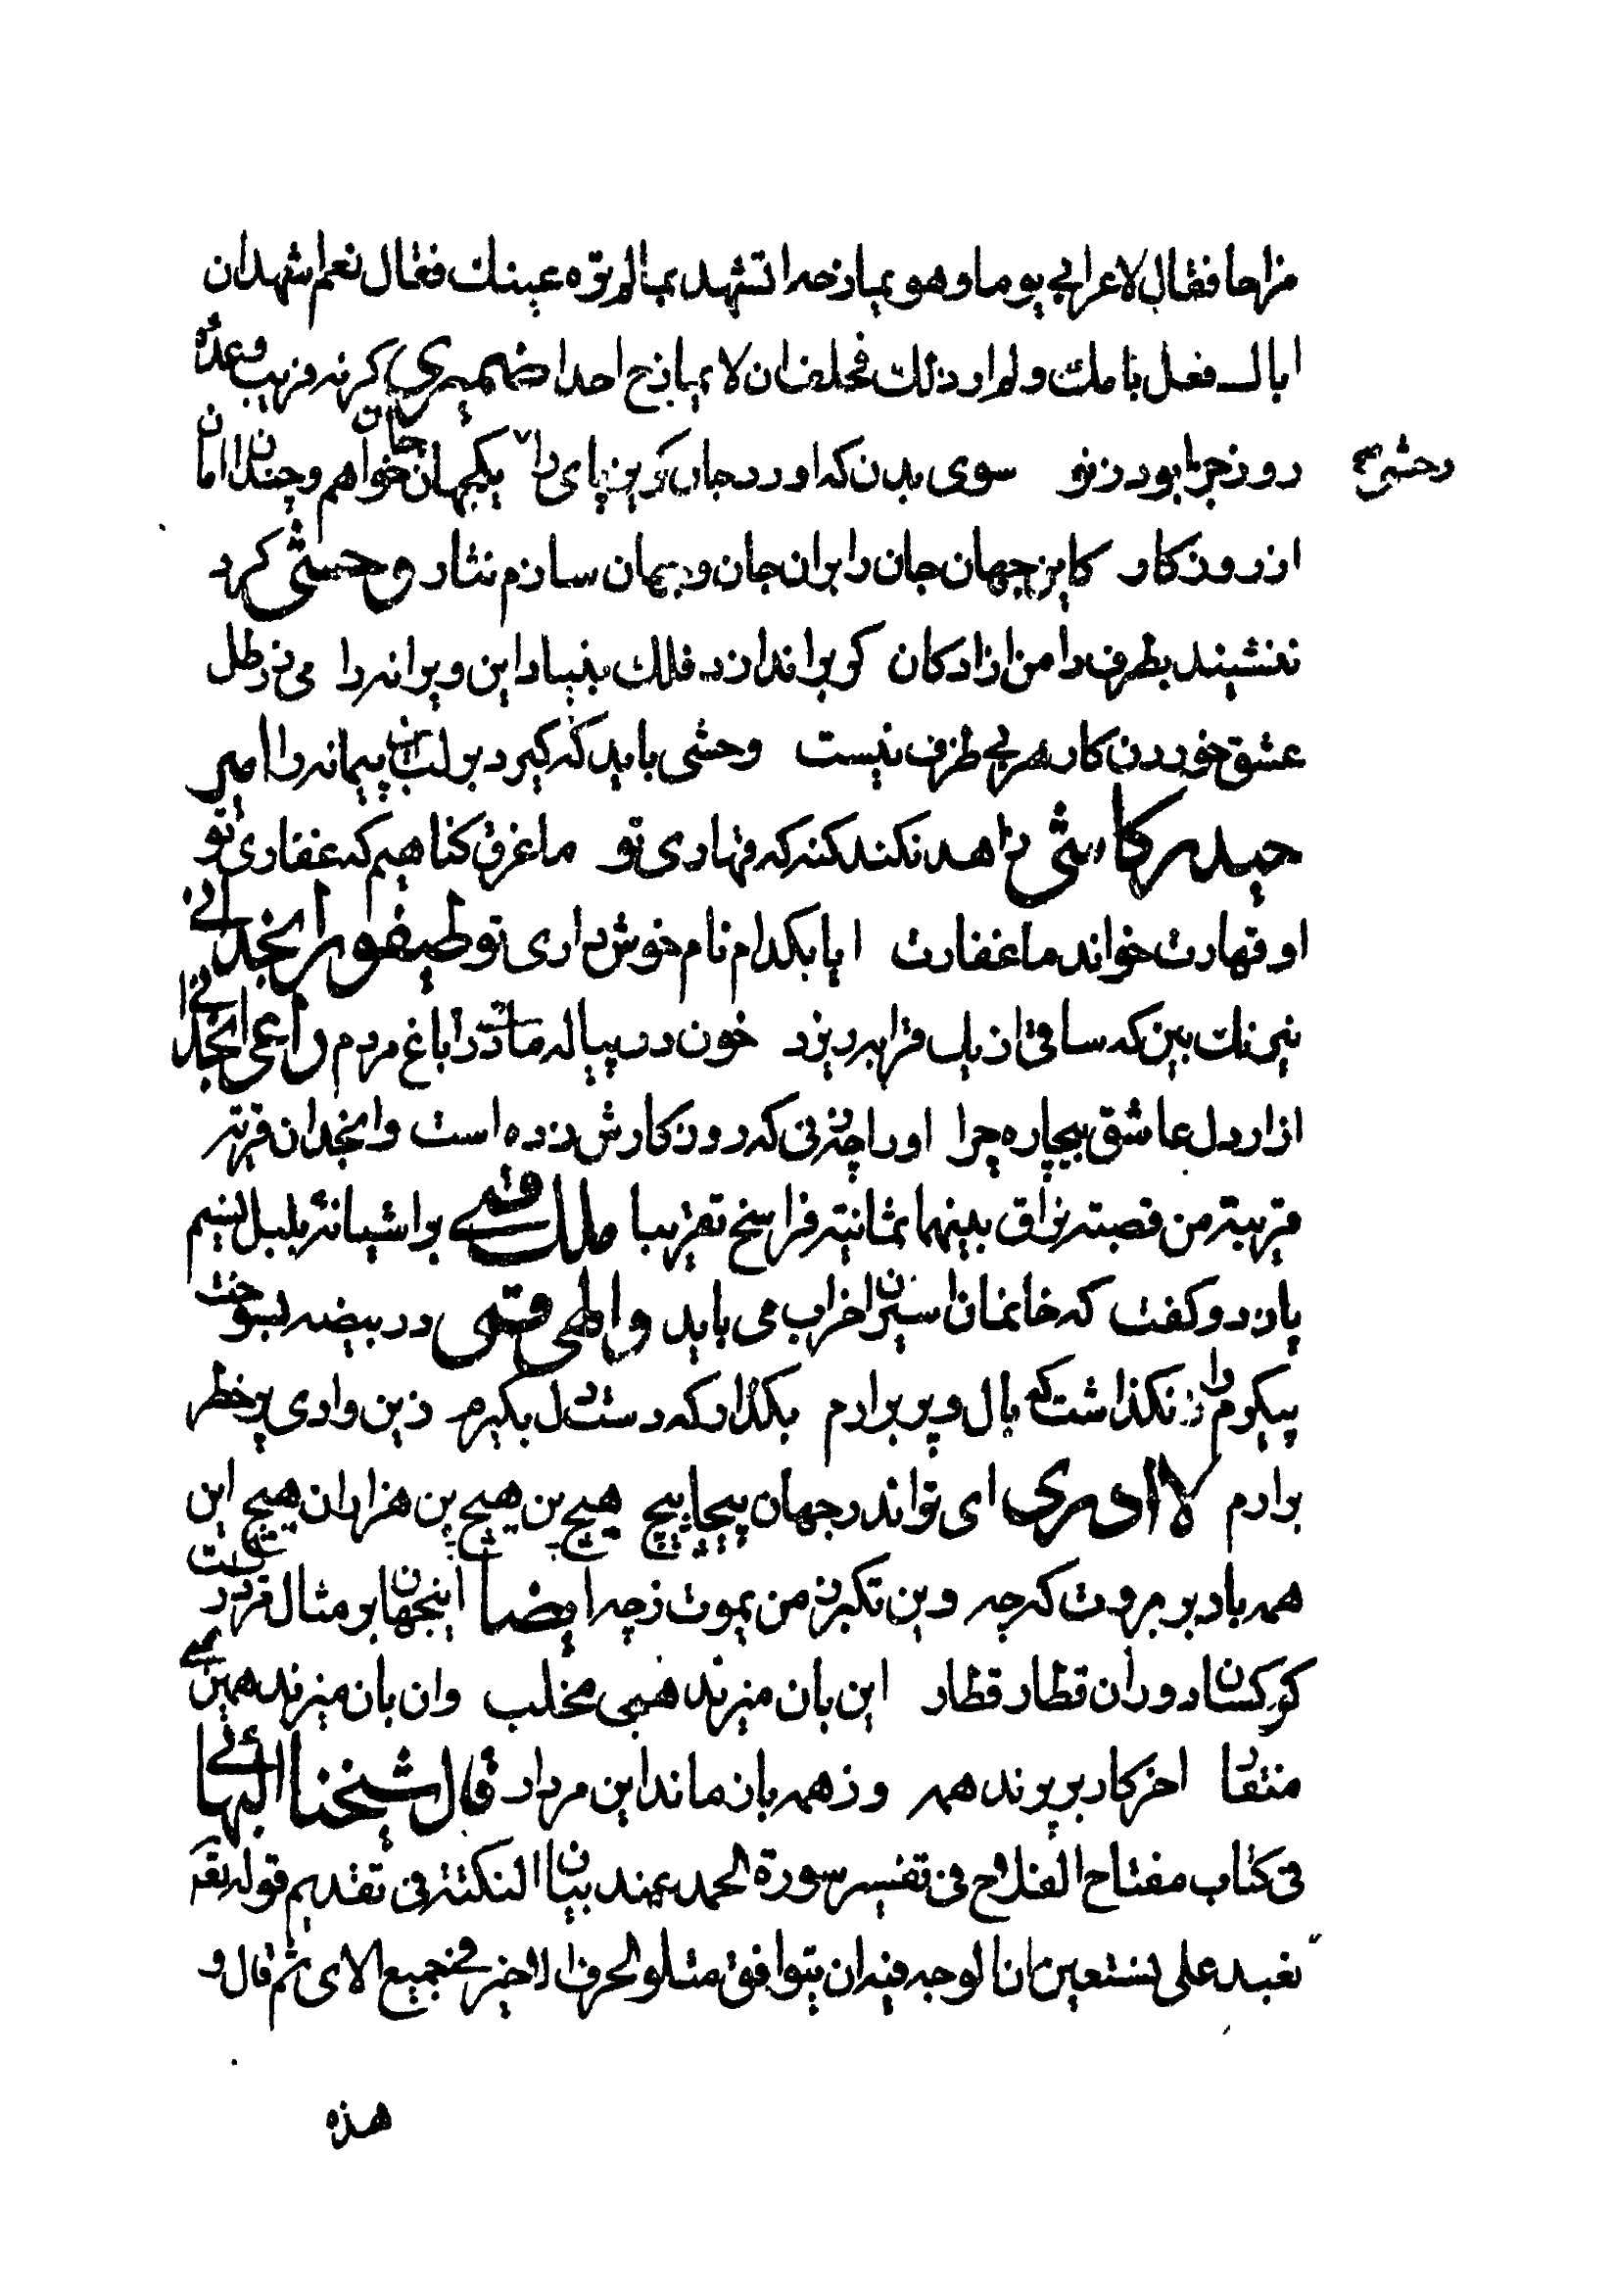 مزاحا فقال لاعرابی یوما وهو یمازحه اتشهد بمالم تره عینك فقال نعم اشهد ان
اباك فعل بامك ولم ار ذلك فحلف ان لا یمازح احدا ضمیری کرنه فریب وعده
روز جزا بود ز تو سوی بدن که اورد جان گریز پای را یکجهان جان خواهم و چندان امان
از روزکار کاین جهان جان را بران جان و جهان سازم نثار وحشی کرد
وحشی
ننشیند بطرف دامن ازادکان کر براندازد فلك بنیاد این ویرانه را می ز رطل
عشق خوردن کار هر بی ظرف نیست وحشی باید که کیرد بر لب این پیمانه را امیر
حیدر کاشی زاهد نکند کنه که قهاری تو ما غرق کناهیم که غفاری تو
او قهارت خواند ما غفارت ایا بکدام نام خوش داری تو طیفور انجدانی
نیرنك بین که ساقی از یك قرابه ریزد خون در پیاله ما در ایاغ مردم راعی انجدانی
ازار دل عاشق بیچاره چرا او را چه زنی که روزکارش زده است وانجدان قریه
قریبة من قصبة نراق بینهما ثمانیة فراسخ تقریبا ملك قمی بر اشیانه بلبل نسیم
پا زد و کفت که خانمان اسیران خراب می باید والهی قمی در بیضه بسوخت
پیکرم را نکذاشت که بال و پر برارم بکذار که دست دل بکیرم زین وادی پر خطر
برارم لا ادری ای تو اند رجهان پیچاپیچ هیچ بن هیچ بن هزاران هیچ این
همه باد بر بروت کرچه وین تکبر من یموت زچه ایضا اینجهان بر مثال مردار است
کرکسان دوران قطار قطار این بان میزند همی مخلب وان بان میزند همی
منقار اخر کار بر پرند همه وز همه باز ماند این مردار قال شیخنا البهائی
فی کتاب مفتاح الفلاح فی تفسیر سورة الحمد عند بیان النکتة فی تقدیم قوله تعه
نعبد علی نستعین ان الوجه فیه ان یتوافق متلو الحرف الاخیر فی جمیع الای ثم قال و
هذه